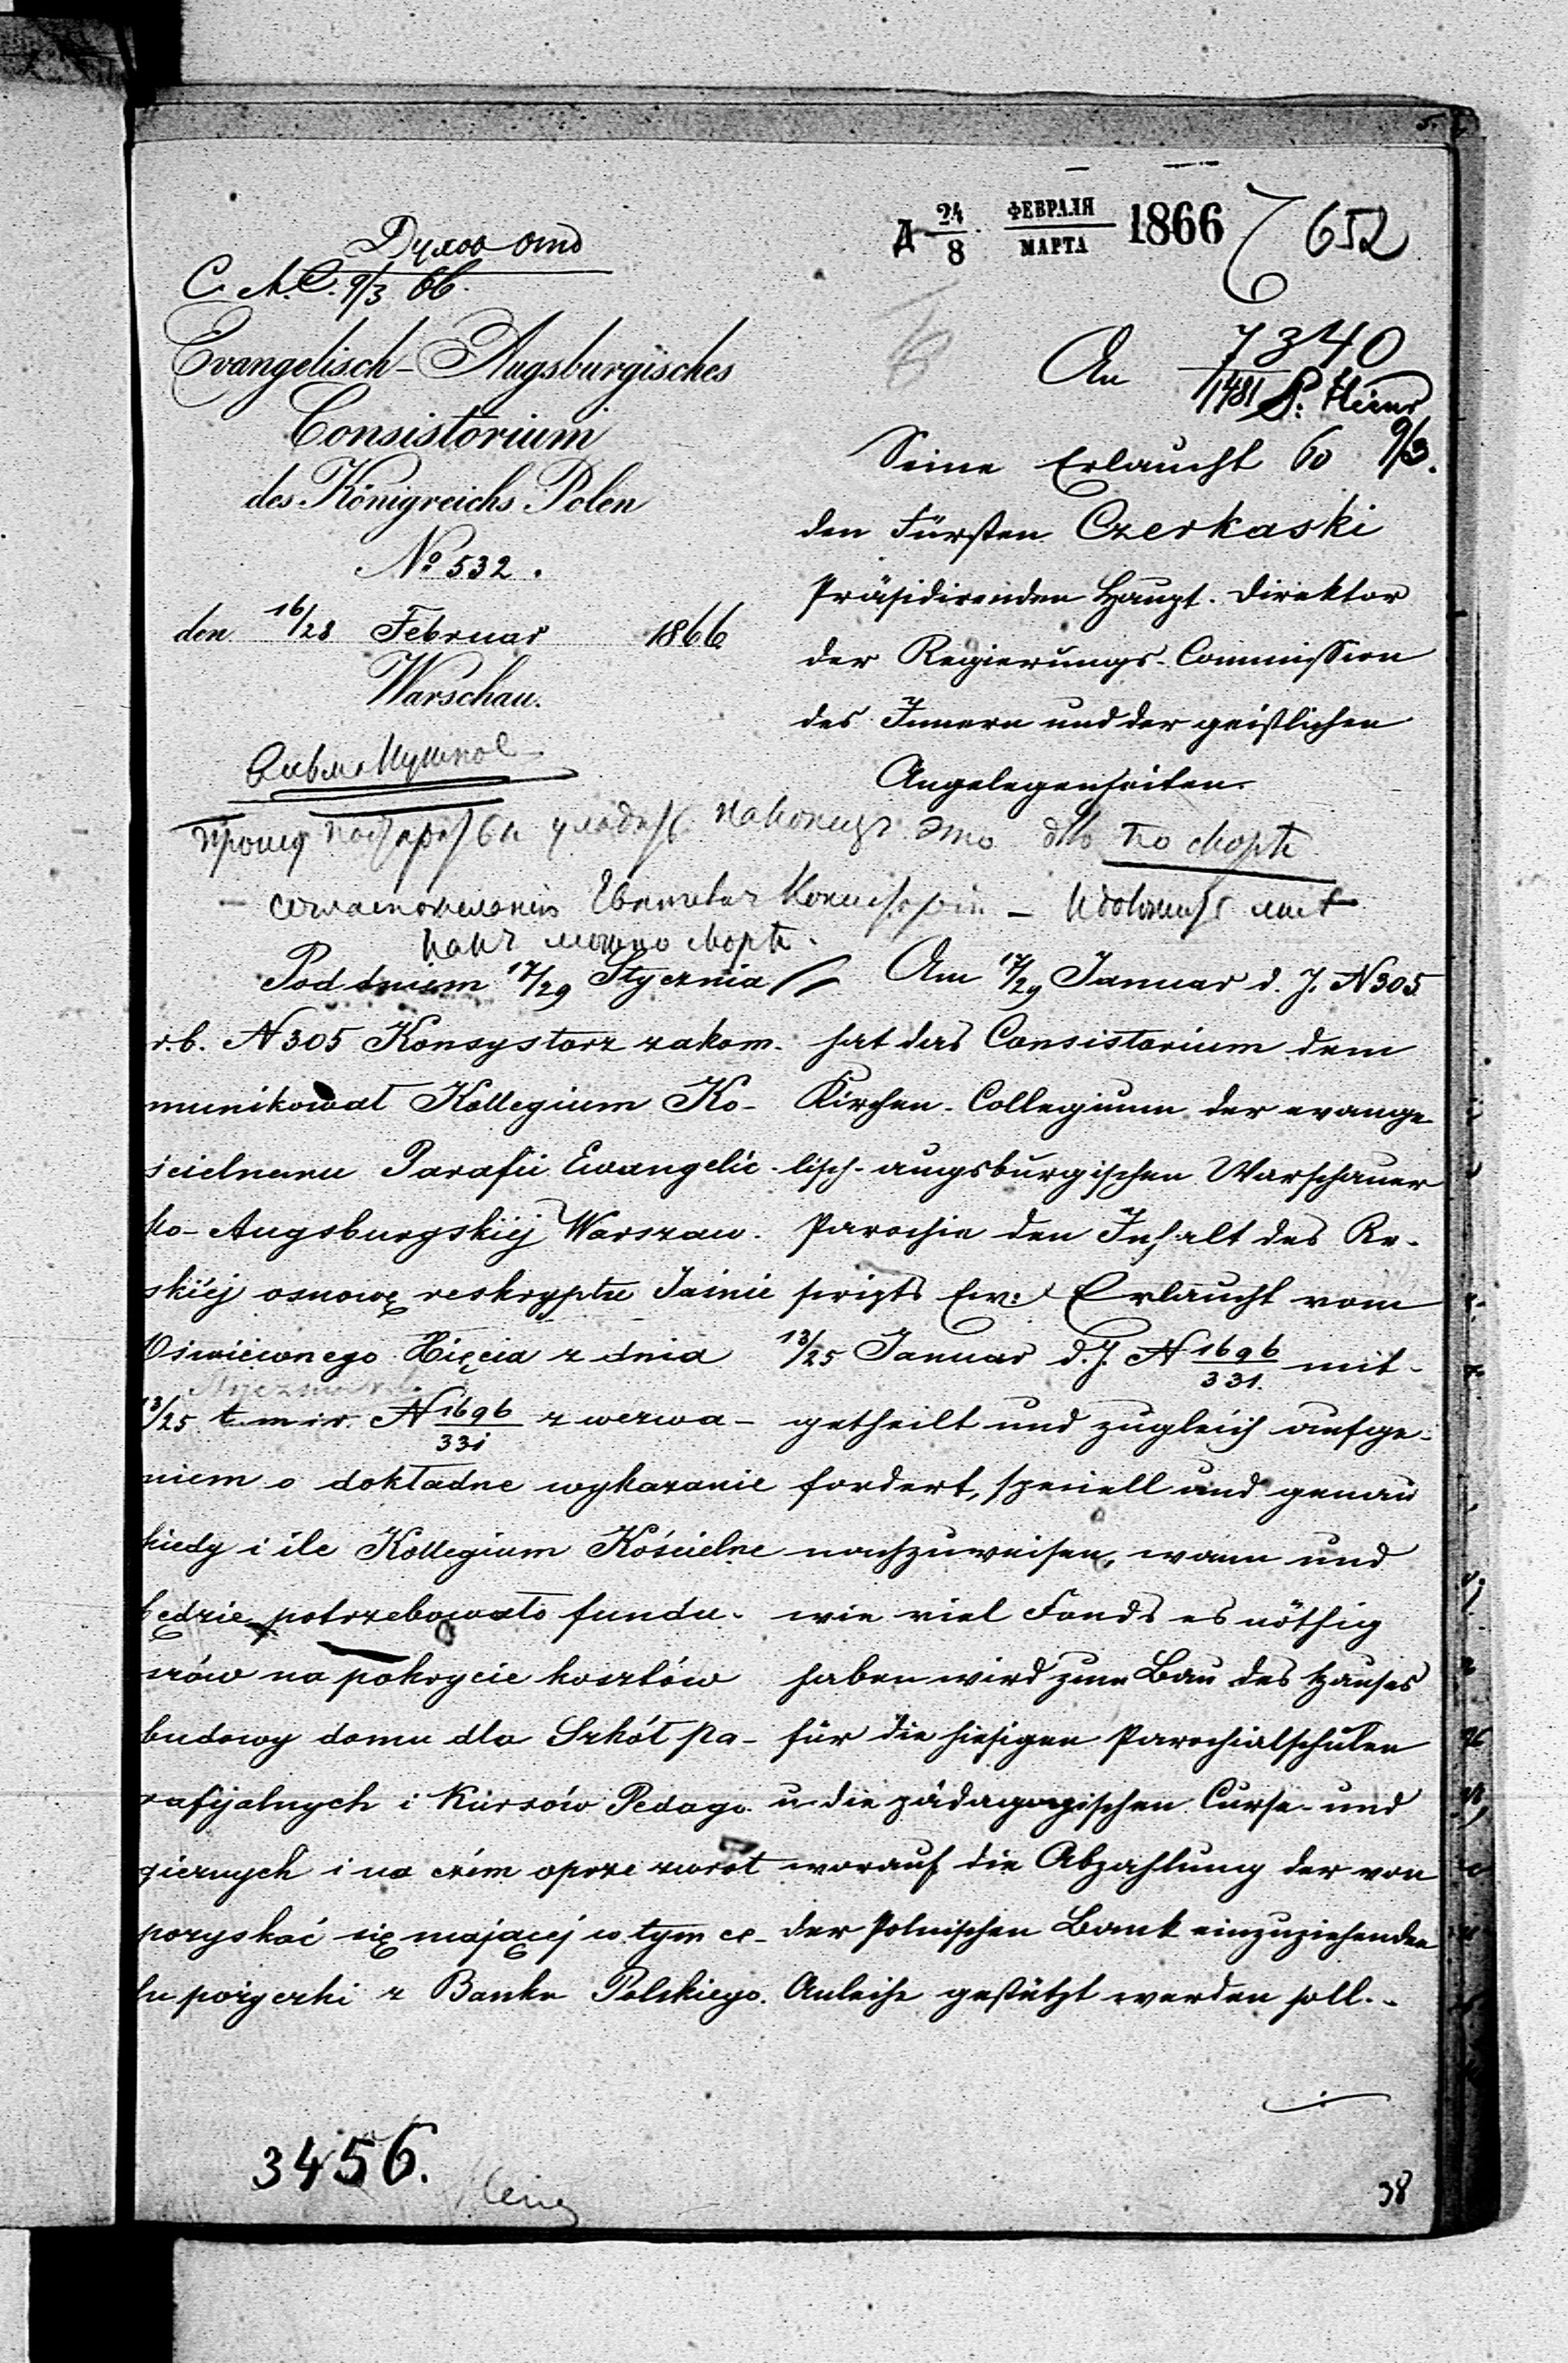 Д 24/8 ФЕВРАЛЯ/МАРТА 1866
652
Духов отд
C. A. C. 9/3 66.
Evangelisch-Augsburgisches
Consistorium
des Königreichs Polen
No 532.
den 16/28 Februar 1866
Warschau.
An
7340
1481
9/3.
Seine Erlaucht
den Fürsten Czerkaski
Präsidirenden Haupt-Direktor
der Regierungs-Commission
des Innern und der geistlichen
Angelegenheiten.
Прошу наконецъ это дѣло по скорѣе
какъ можно скорѣе.
Pod dniem 17/29 Stycznia
r.b. N 305 Konsystorz zakom-
munikował Kollegium Ko-
ścielnemu Parafii Ewangelic-
ko-Augsburgskiéj Warszaw-
skiéj osnowę reskryptu Jaśnie
Oświeconego Xięcia z dnia
Stycznia r.b.
13/25 t. m i r. N 1696/331 z wezwa-
niem o dokładne wykazanie
kiedy i ile Kollegium Kościelne
będzie potrzebowało fundu-
szów na pokrycie kosztów
budowy domu dla Szkół pa-
rafijalnych i Kursów Pedago-
gicznych i na czém oprze zwrot
pozyskać się mającéj w tym ce-
lu pożyczki z Banku Polskiego.
Am 17/29 Januar d. J. N 305
hat das Consistorium dem
Kirchen-Collegium der evange-
lisch-augsburgischen Warschauer
Parochie den Inhalt des Re-
scripts Ew: Erlaucht vom
13/25 Januar d. J. N 1696/331. mit-
getheilt und zugleich aufge-
fordert, speciell und genau
nachzuweisen, wann und
wie viel Fonds es nöthig
haben wird zum Bau des Hauses
für die hiesigen Parochialschulen
u. die pädagogischen Curse und
worauf die Abzahlung der von
der Polnischen Bank einzuziehenden
Anleihe gestützt werden soll.-
3456.
38